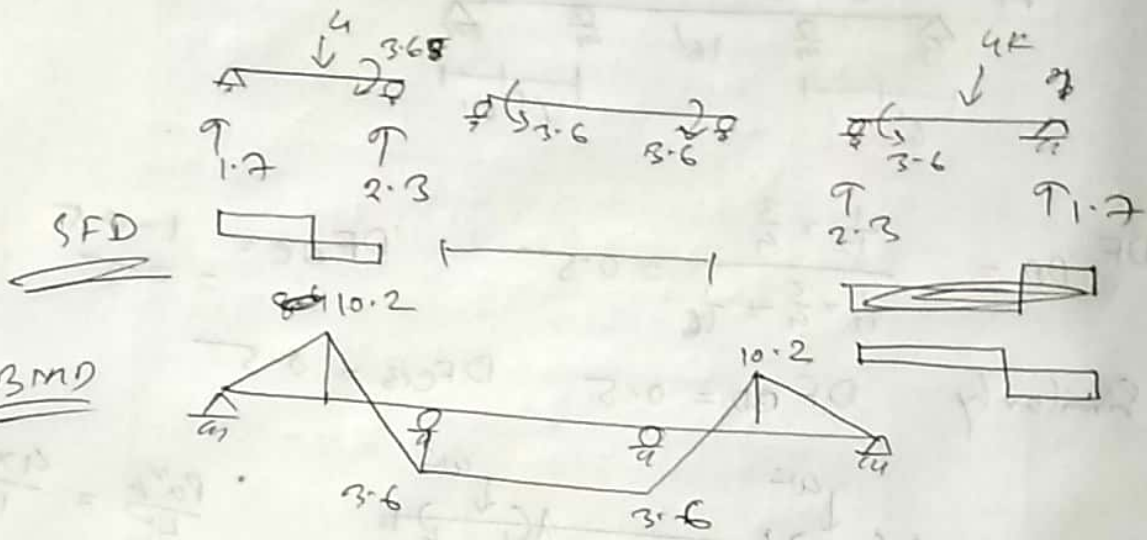 4
3.68
4K
3.6
3.6
3.6
1.7
2.3
2.3
1.7
SFD
10.2
BMD
10.2
3.6
3.6